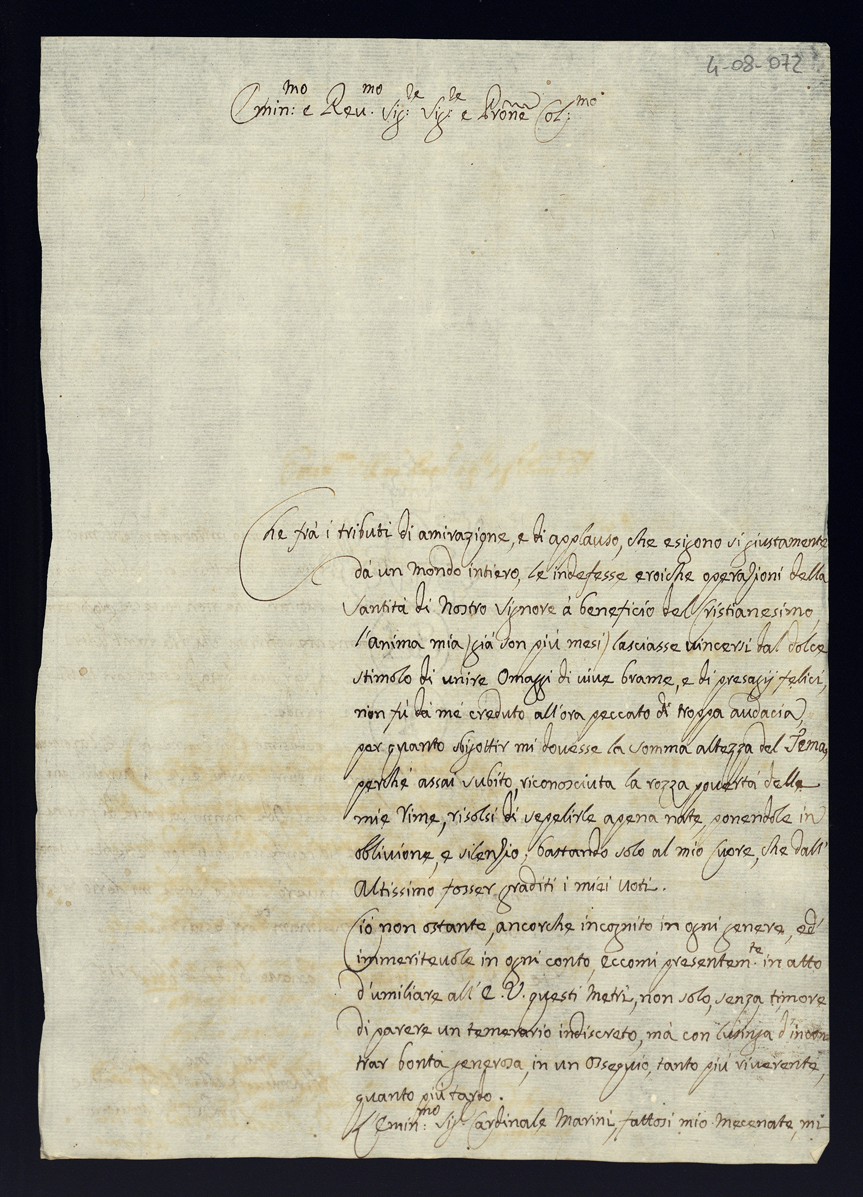 4-08-072
Emin:mo e Reu.mo Sig:re Sig:re e Prōne Col:mo
Che frà i tributi di amirazione, e di applauso, che esigono si giustamente
dà un Mondo intiero, le indefesse eroiche operazioni della
Santità di Nostro Signore à beneficio del Cristianesimo,
l'anima mia (già son più mesi) lasciasse vincersi dal dolce
stimolo di unire Omaggi di vive brame, e di presagij felici,
non fù da mé creduto all'ora peccato di troppa audacia,
per quanto sbigottir mi douesse la somma altezza del Tema,
perché assai subito, riconosciuta la rozza pouertà delle
mie Rime, risolsi di sepelirle apena nate, ponendole in
obblivione, e silenzio; bastando solo al mio Cuore, che dall'
Altissimo fosser graditi i miei voti.
Ciò non ostante, ancorche incognito in ogni genere, ed'
immeriteuole in ogni conto, eccomi presentem:te in atto
d'umiliare all'E. V. questi Metri, non solo, senza timore
di parere un temerario indiscreto, mà con lusinga d'incon=
trar bontà generosa, in un Ossequio, tanto più riuerente,
quanto più tardo.
L'Emin:mo Sig:r Cardinale Marini, fattosi mio Mecenate, mi